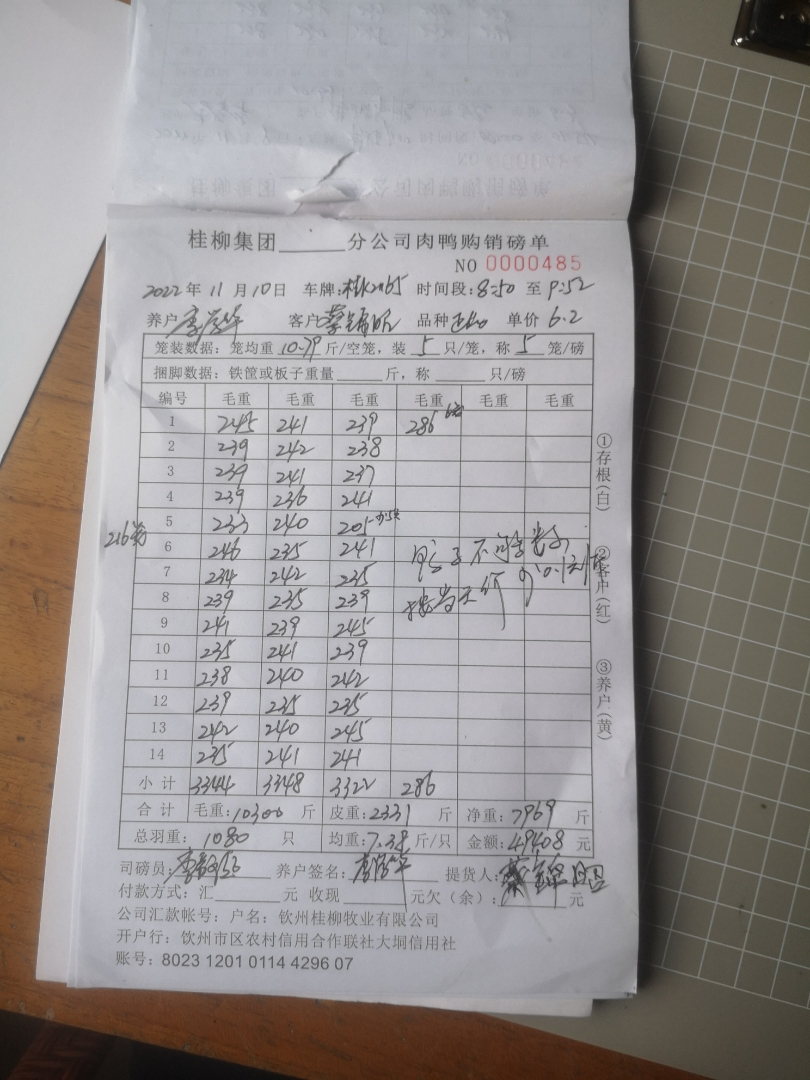 桂柳集团______分公司肉鸭购销磅单
NO 0000485
2022年11月10日 车牌: 时间段:8:50至9:52
养户 客户 品种 单价6.2
笼装数据:笼均重10.79斤/空笼,装5只/笼,称5笼/磅
捆脚数据:铁筐或板子重量______斤,称______只/磅
编号 毛重 毛重 毛重 毛重 毛重 毛重
1 245 241 239 286 6笼
2 239 242 238
3 239 241 237
4 239 236 241
5 233 240 205
216笼
6 246 235 241
7 234 242 235
8 239 235 239
9 241 239 245
10 235 241 239
11 238 240 242
12 239 235 235
13 242 240 245
14 235 241 241
小计 3344 3348 3322 286
合计 毛重:10300斤 皮重:2331斤 净重:7969斤
总羽重:1080只 均重:7.38斤/只 金额:49408元
司磅员: 养户签名: 提货人:
付款方式:汇______元 收现______元欠(余):______元
公司汇款帐号:户名:钦州桂柳牧业有限公司
开户行:钦州市区农村信用合作联社大垌信用社
账号:8023 1201 0114 4296 07
①存根(白)
②客户(红)
③养户(黄)